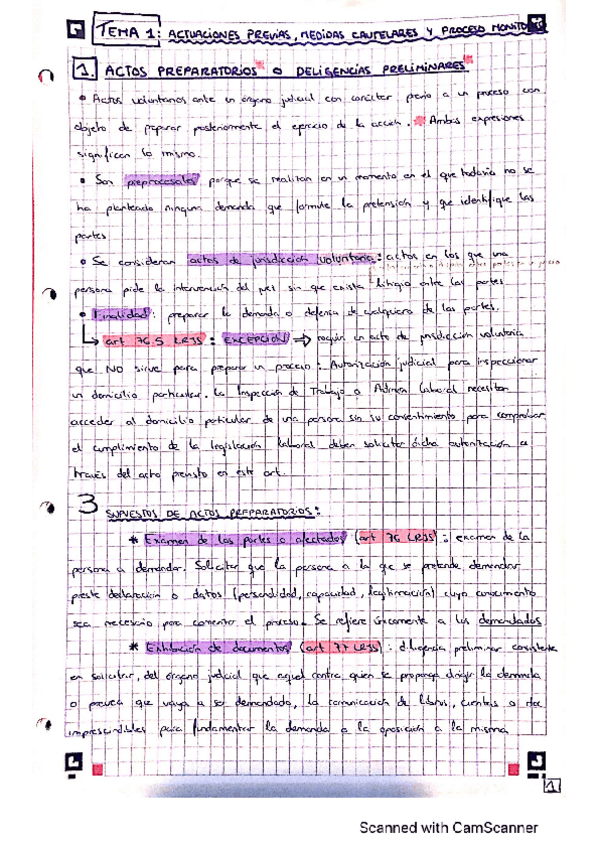 TEMA 1: ACTUACIONES PREVIAS, MEDIDAS CAUTELARES Y PROCESO MONITO
1. ACTOS PREPARATORIOS* O DELIGENCIAS PRELIMINARES*
• Actos voluntarios ante un órgano judicial con carácter previo a un proceso con
objeto de preparar posteriormente el ejercicio de la acción. * Ambas expresiones
significan lo mismo.
• Son preprocesales porque se realizan en un momento en el que todavía no se
ha planteado ninguna demanda que formule la pretensión y que identifique las
partes
• Se consideran actos de jurisdicción voluntaria: actos en los que una
persona pide la intervención del juez sin que exista litigio entre las partes
• Finalidad: preparar la demanda o defensa de cualquiera de las partes.
↳ art 76.5 LRJS: EXCEPCIÓN ⇒ regula un acto de jurisdicción voluntaria
que NO sirve para preparar un proceso: Autorización judicial para inspeccionar
un domicilio particular. La Inspección de Trabajo o Admon laboral necesitan
acceder al domicilio particular de una persona sin su consentimiento para comprobar
el cumplimiento de la legislación laboral deben solicitar dicha autorización a
través del acto previsto en este art.
3 SUPUESTOS DE ACTOS PREPARATORIOS:
* Examen de las partes o afectados (art 76 LRJS): examen de la
persona a demandar. Solicitar que la persona a la que se pretende demandar
preste declaración o datos (personalidad, capacidad, legitimación) cuyo conocimiento
sea necesario para comenzar el proceso. Se refiere únicamente a los demandados
* Exhibición de documentos (art 77 LRJS): diligencia preliminar consistente
en solicitar, del órgano judicial que aquel contra quien se proponga dirigir la demanda
o prevea que vaya a ser demandado, la comunicación de libros, cuentas o doc
imprescindibles para fundamentar la demanda o la oposición a la misma
1
Scanned with CamScanner